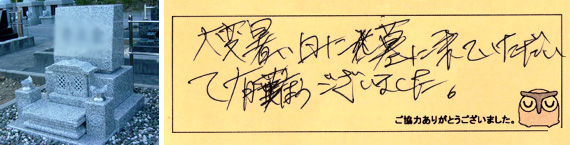 大変暑い日に墓に来ていただい
て有難うございました。
ご協力ありがとうございました。